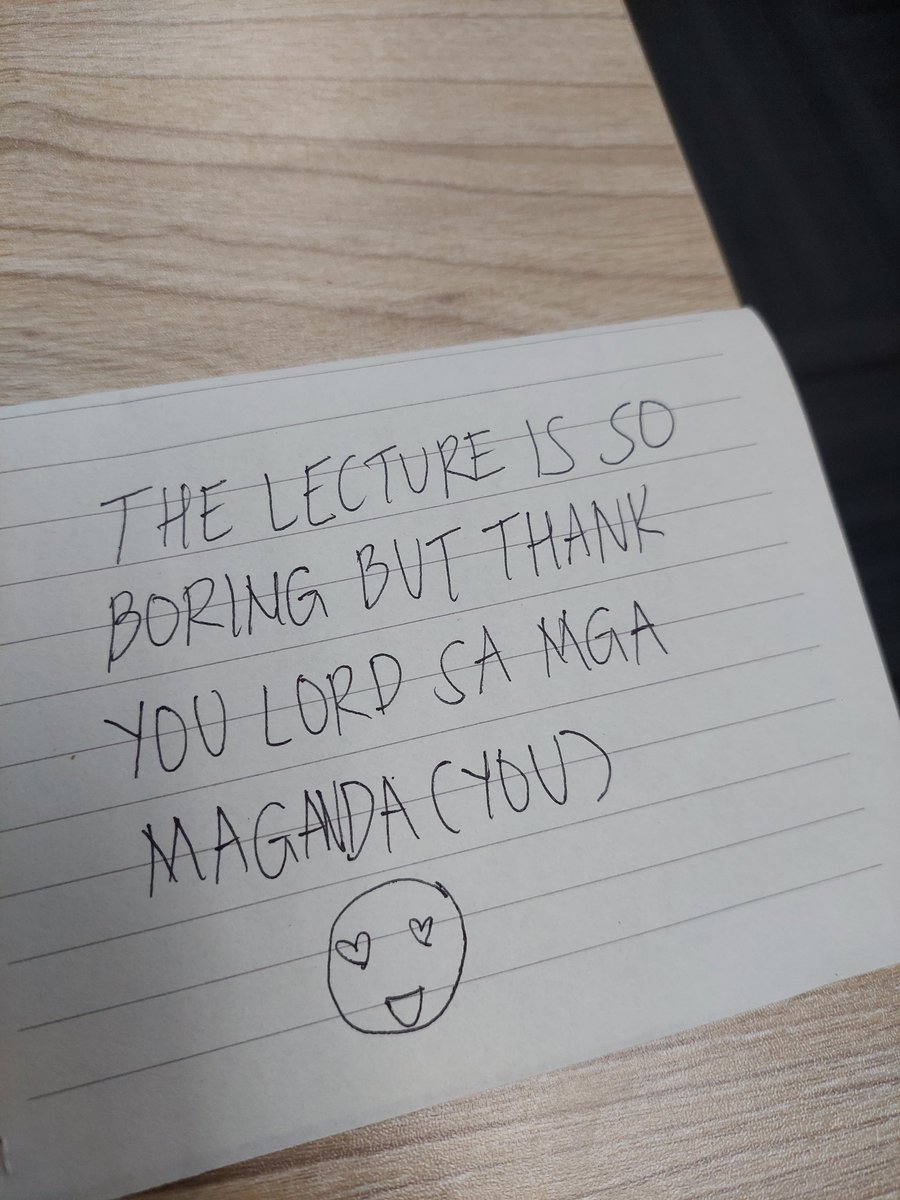 THE LECTURE IS SO
BORING BUT THANK
YOU LORD SA MGA
MAGANDA (YOU)